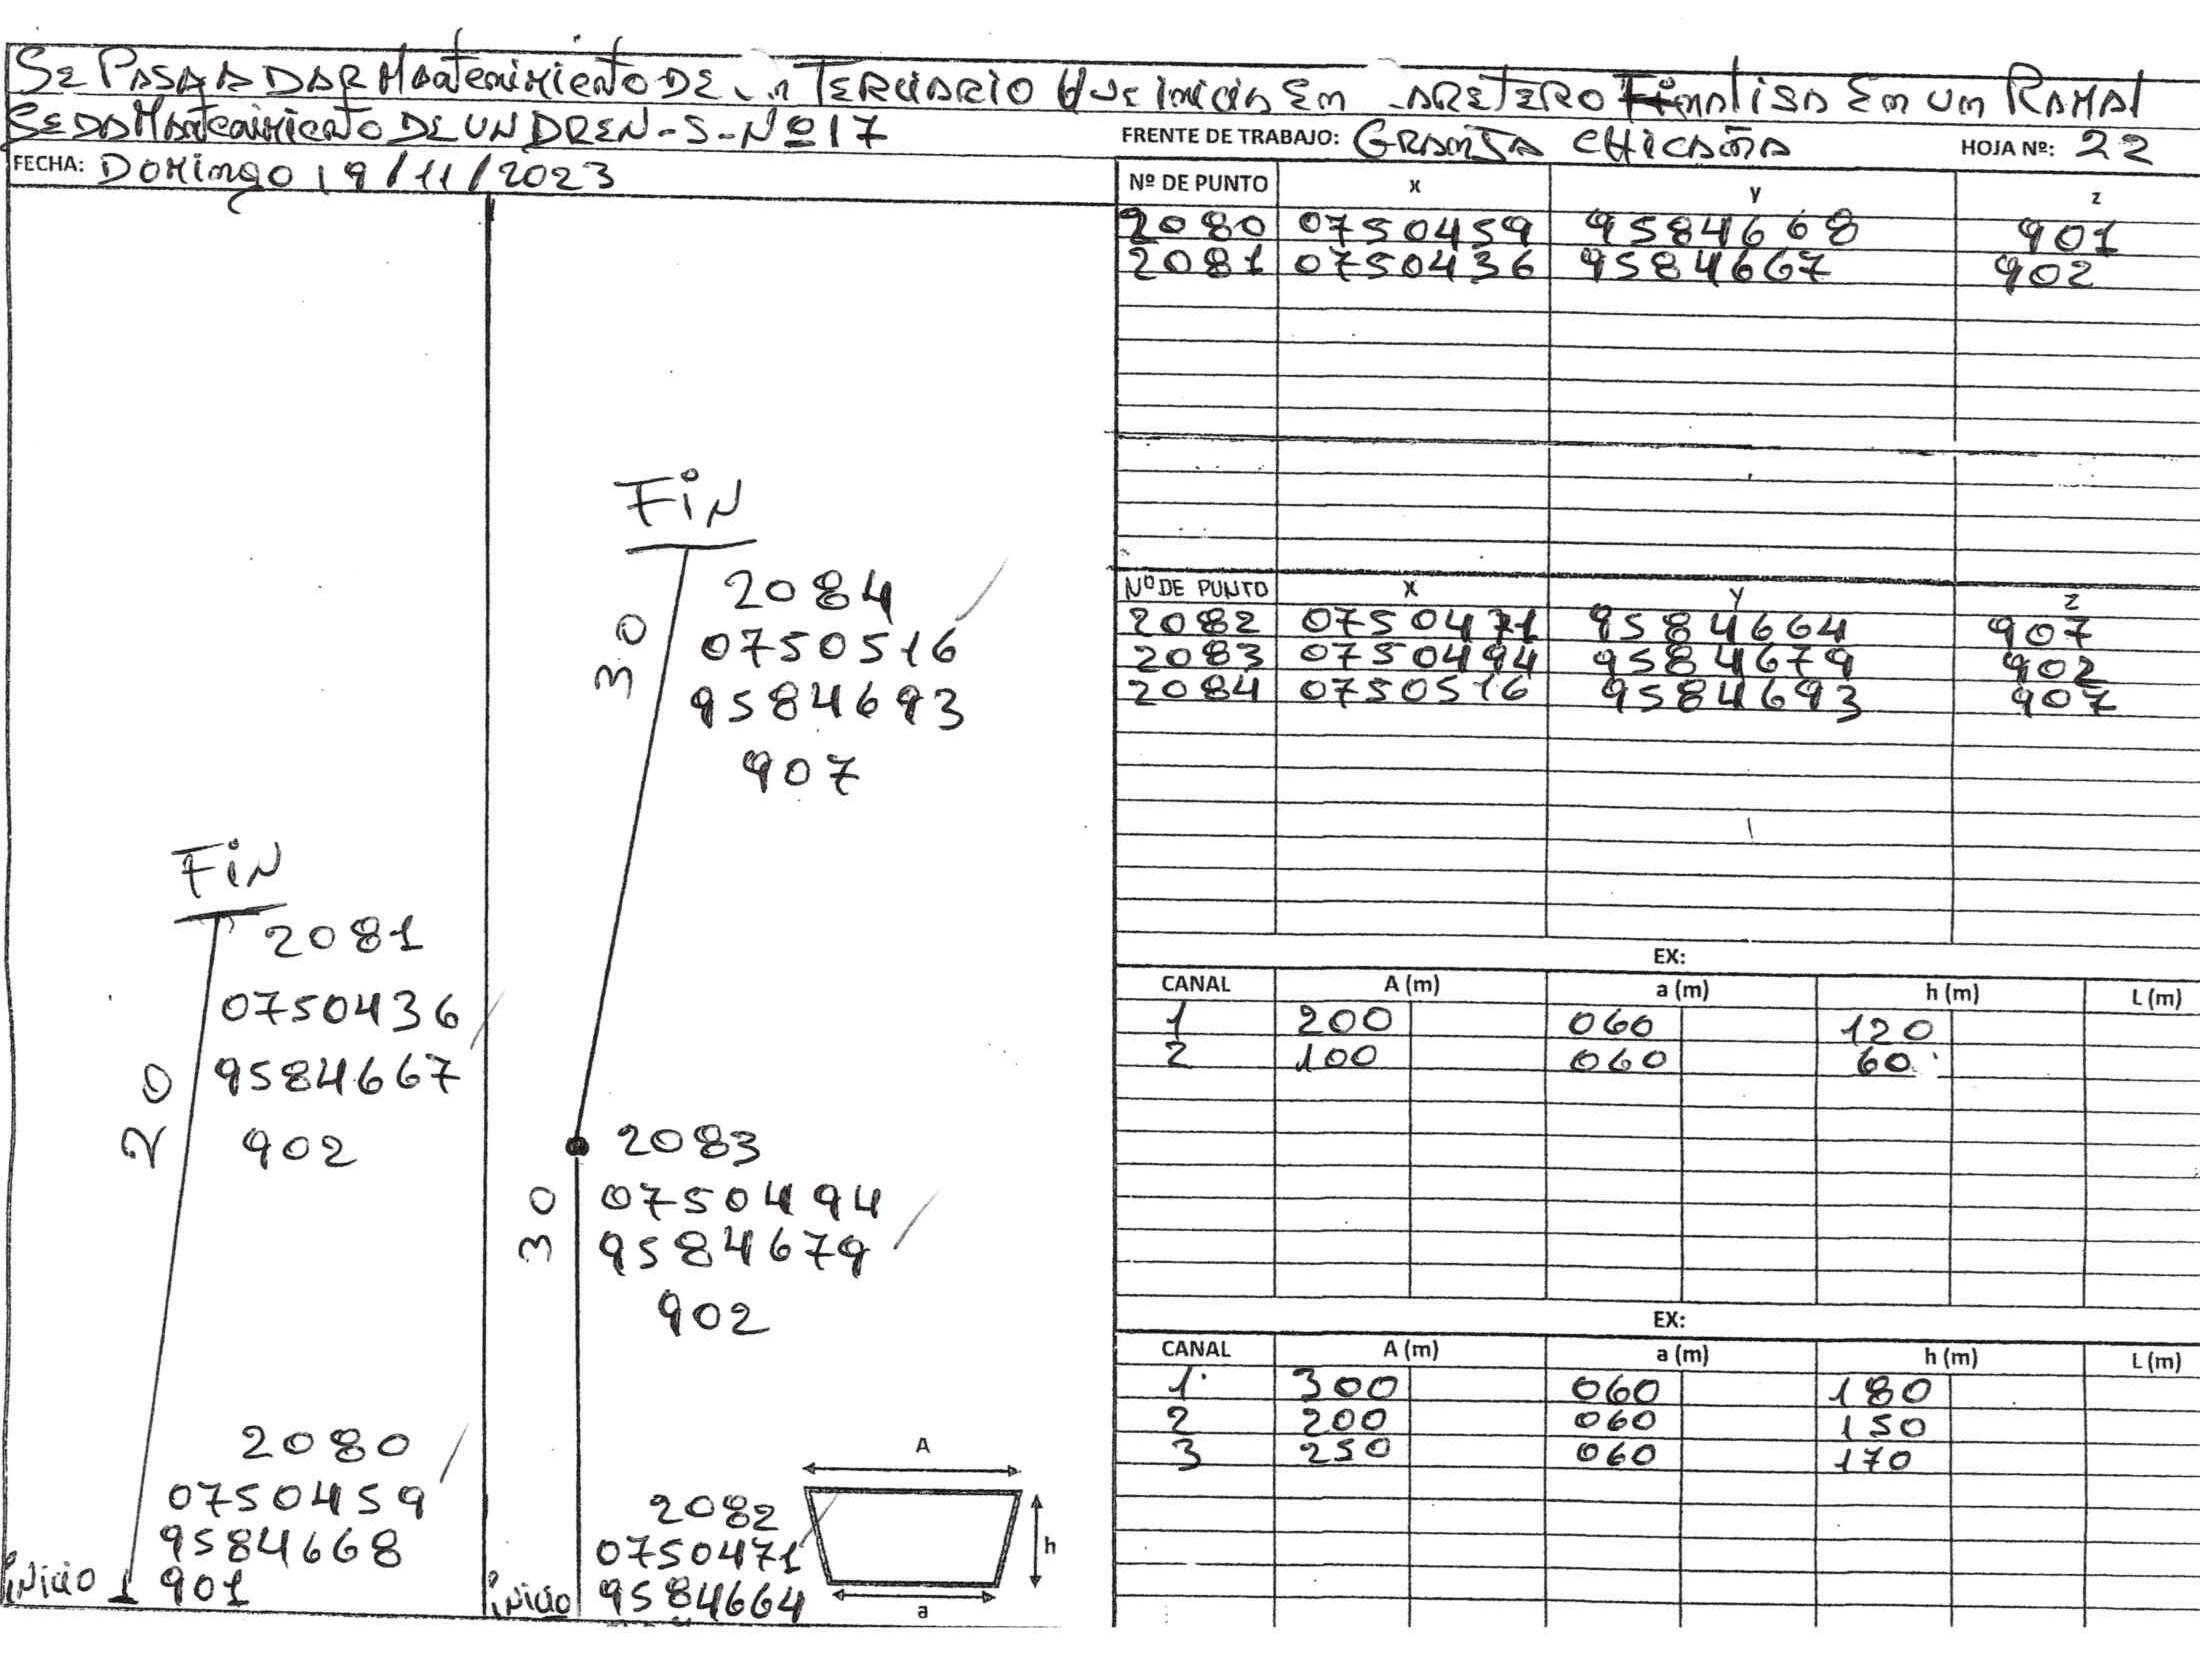 SE PASA A DAR Mantenimiento DE un TERCIARIO QUE inicia En CARETERO FinAliSA En un RAMAl
SE DA Mantenimiento DE UN DREN-S-Nº17
FRENTE DE TRABAJO: GRANJA CHICAÑA HOJA Nº: 22
FECHA: Domingo 19/11/2023
Nº DE PUNTO x y z
2080 0750459 9584668 901
2081 0750436 9584667 902
Nº DE PUNTO X Y Z
2082 0750471 9584664 907
2083 0750494 9584679 902
2084 0750516 9584693 907
EX:
CANAL A (m) a (m) h (m) L (m)
1 200 060 120
2 100 060 60
EX:
CANAL A (m) a (m) h (m) L (m)
1 300 060 180
2 200 060 150
3 250 060 170
FiN
2081
0750436
9584667
902
20
2080
0750459
9584668
901
iNicio
FiN
2084
0750516
9584693
907
30
2083
0750494
9584679
902
30
2082
0750471
9584664
iNicio
A
h
a